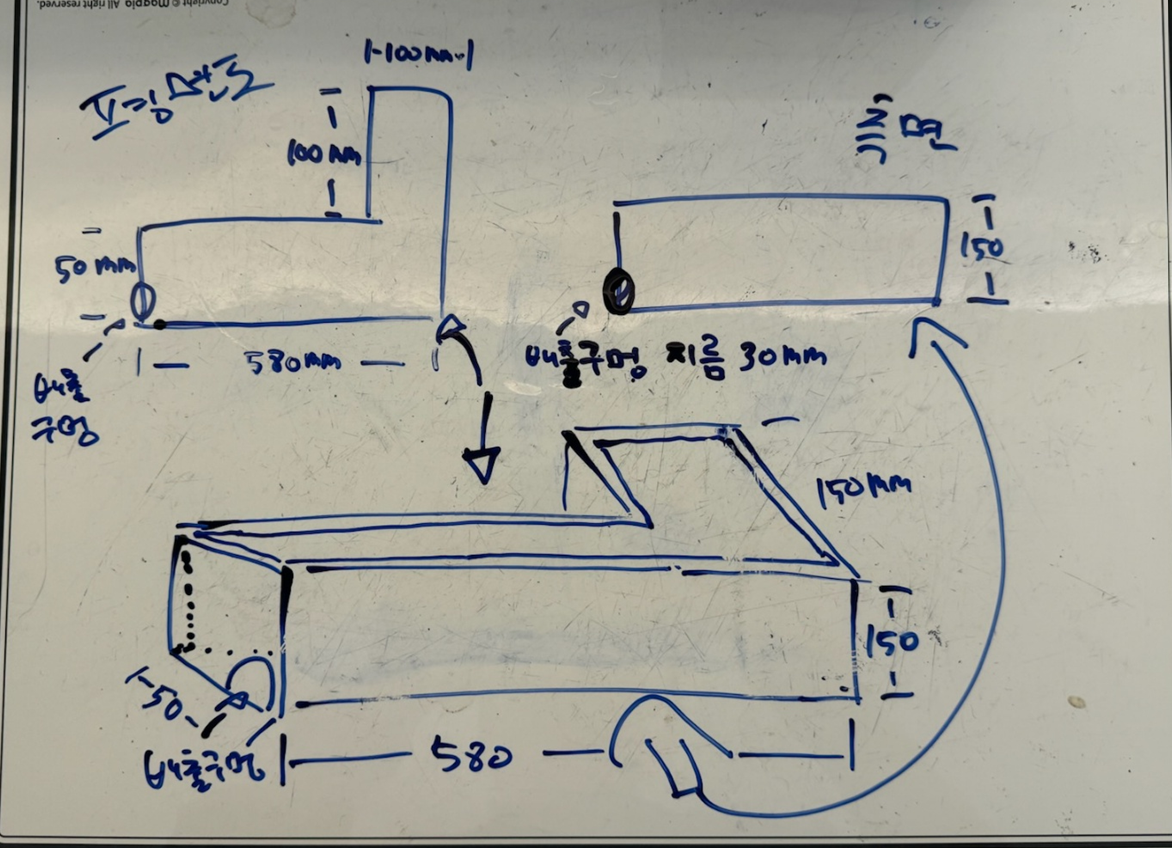 Copyright © Magpie All right reserved.
|-100mm-|
100mm
50mm
580mm
배출
구멍
150
배출구멍 지름 30mm
150mm
150
50
배출구멍
580